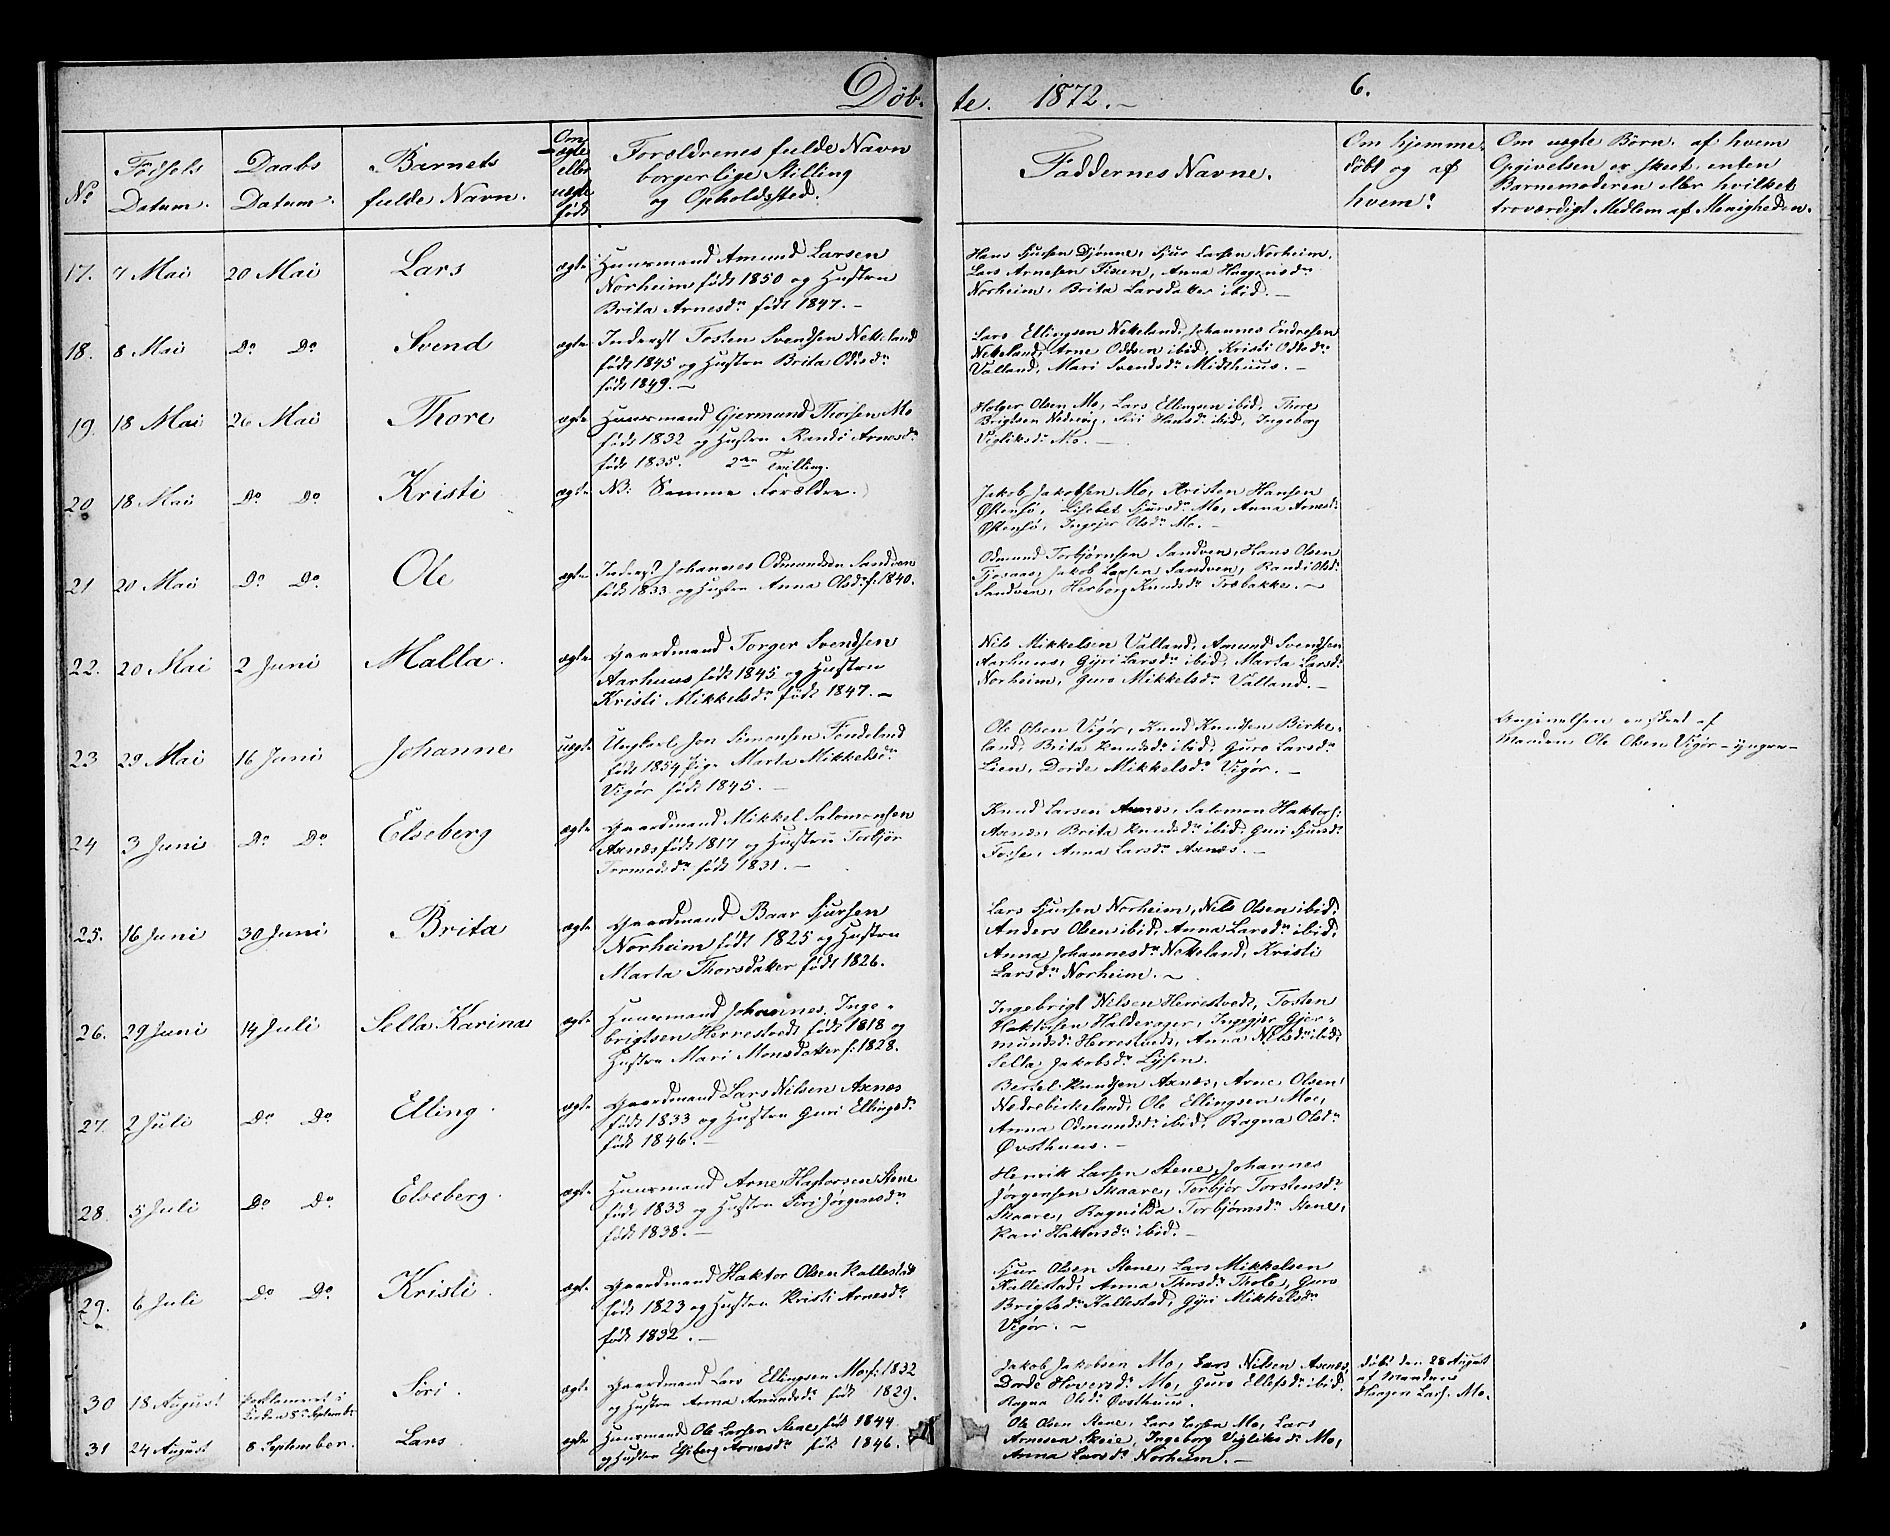 Døb-
te. 1872.-
6.
No
Fødsels
Datum.
Daabs
Datum.
Barnets
fulde Navn.
Om
ægte
eller
uægte
født
Forældrenes fulde Navn
borgerlige Stilling
og Opholdssted.
Faddernes Navne.
Om hjemme
døbt og af
hvem?
Om uægte Børn. af hvem
Opgivelsen er skeet, enten
Barnemoderen eller hvilket
troværdigt Medlem af Menigheden.
17. 7 Mai 20 Mai Lars ægte
Huusmand Amund Larsen
Norheim født 1850 og Hustru
Brita Arnesdr født 1847.-
Hans Sjursen Djønne, Sjur Larsen Norheim,
Lars Arnesen Tien, Anna Haagensdr
Norheim, Brita Larsdatter ibid.-
18. 8 Mai Do Do Svend ægte
Inderst Tosten Svendsen Nekeland
født 1845 og Hustru Brita Odsdr
født 1849.-
Lars Ellingsen Nekeland, Johannes Endresen
Nekeland, Arne Oddsen ibid, Kristi Oddsdr
Valland, Mari Svendsdr Midthuus.-
19. 18 Mai 26 Mai Thore ægte
Huusmand Gjermund Thorsen Mo
født 1832 og Hustru Randi Arnesdr
født 1835. 2de Tvilling.
Holger Olsen Mo, Lars Ellingsen ibid, Thore
Brigtsen Nedvig, Siri Hansdr ibid, Ingeborg
Vigliksdr Mo.-
20 18 Mai Do Do Kristi ægte
NB: Samme Forældre.
Jakob Jakobsen Mo, Kristen Hansen
Østensø, Lisebet Sjursdr Mo, Anna Arnesdr
Østensø, Ingejer Olsdr Mo.-
21 20 Mai Do Do Ole ægte
Inderst Johannes Odmundsen Sandven
født 1833 og Hustru Anna Olsdr f. 1840.
Odmund Torbjørnsen Sandven, Hans Olsen
Tjosaas, Jakob Larsen Sandven, Randi Olsdr
Sandven, Herborg Knudsdr Træbakke.-
22. 20 Mai 2 Juni Malla. ægte
Gaardmand Torger Svendsen
Aarhuus født 1845 og Hustru
Kristi Mikkelsdr født 1847.-
Nils Mikkelsen Valland, Amund Svendsen
Aarhuus, Gyri Larsdr ibid, Marta Larsdr
Norheim, Guro Mikkelsdr Valland.-
23 29 Mai 16 Juni Johanne uægte
Ungkarl Jon Simonsen Fondeland
født 1854 Pige Marta Mikkelsdr
Vigør født 1845.-
Ole Olsen Vigør, Knud Knudsen Birke-
land, Brita Knudsdr ibid, Guro Larsdr
Lien, Dorde Mikkelsdr Vigør.-
Angivelsen er skeet af
Manden Ole Olsen Vigør - yngre-
24 3 Juni Do Do Elseberg ægte
Gaardmand Mikkel Salomonsen
Axnæs født 1817 og Hustru Torbjør
Tormodsdr født 1831.-
Knud Larsen Axnæs, Salomon Haktors:
Axnæs, Brita Knudsdr ibid, Guri Sjursdr
Fosse, Anna Larsdr Axnæs.-
25. 16 Juni 30 Juni Brita ægte
Gaardmand Baar Sjursen
Norheim født 1825 og Hustru
Marta Thorsdatter født 1826.
Lars Sjursen Norheim, Nils Olsen ibid;
Anders Olsen ibid, Anna Larsdr ibid,
Anna Johannesdr Nekeland, Kristi
Larsdr Norheim.-
26. 29 Juni 14 Juli Sella Karina ægte
Huusmand Johannes Inge-
brigtsen Herrestvedt født 1818 og
Hustru Mari Monsdatter f. 1828.
Ingebrigt Nilsen Herrestvedt, Tosten
Haktorsen Halderager, Ingejer Gjer-
mundsdr Herrestvedt, Anna Nilsdr ibid;
Sella Jakobsdr Lysen.
27. 2 Juli Do Do Elling. ægte
Gaardmand Lars Nilsen Axnæs
født 1833 og Hustru Guri Ellingsdr
født 1846.-
Bertel Knudsen Axnæs, Arne Olsen
Nedrebirkeland, Ole Ellingsen Mo,
Anna Odmundsdr ibid, Ragna Olsdr
Øvsthuus.-
28. 5 Juli Do Do Elseberg. ægte
Huusmand Arne Haktorsen Stene
født 1833 og Hustru Siri Jørgensdr
født 1838.-
Henrik Larsen Stene, Johannes
Jørgensen Skaare, Torbjør Torstensdr
Skaare, Ragnilda Torbjørnsdr Stene,
Kari Haktorsdr ibid.-
29. 6 Juli Do Do Kristi. ægte
Gaardmand Haktor Olsen Kallestad
født 1823 og Hustru Kristi Arnesdr
født 1832.-
Sjur Olsen Stene, Lars Mikkelsen
Kallestad, Anna Thorsdr Thole, Guro
Brigtsdr Kallestad, Gyri Mikkelsdr
Vigør.-
30 18 August
Proklameret i
Kirken 8de September
Siri. ægte
Gaardmand Lars Ellingsen Mo, f: 1832
og Hustru Anna Amundsdr født 1829.
Jakob Jakobsen Mo, Lars Nilsen Axnæs,
Dorde Hoversdr Mo, Guro Ellefsdr ibid.
Ragna Olsdr Øvsthuus.
Døbt den 28 August
af Manden
Haagen Lars. Mo.
31 24 August 8 September. Lars ægte
Huusmand Ole Larsen Stene født 1844
og Hustru Elseberg Arnesdr født 1846.
Ole Olsen Stene, Lars Larsen Mo, Lars
Arnesen Skeie, Ingeborg Vigliksdr Mo,
Anna Larsdr Norheim.-